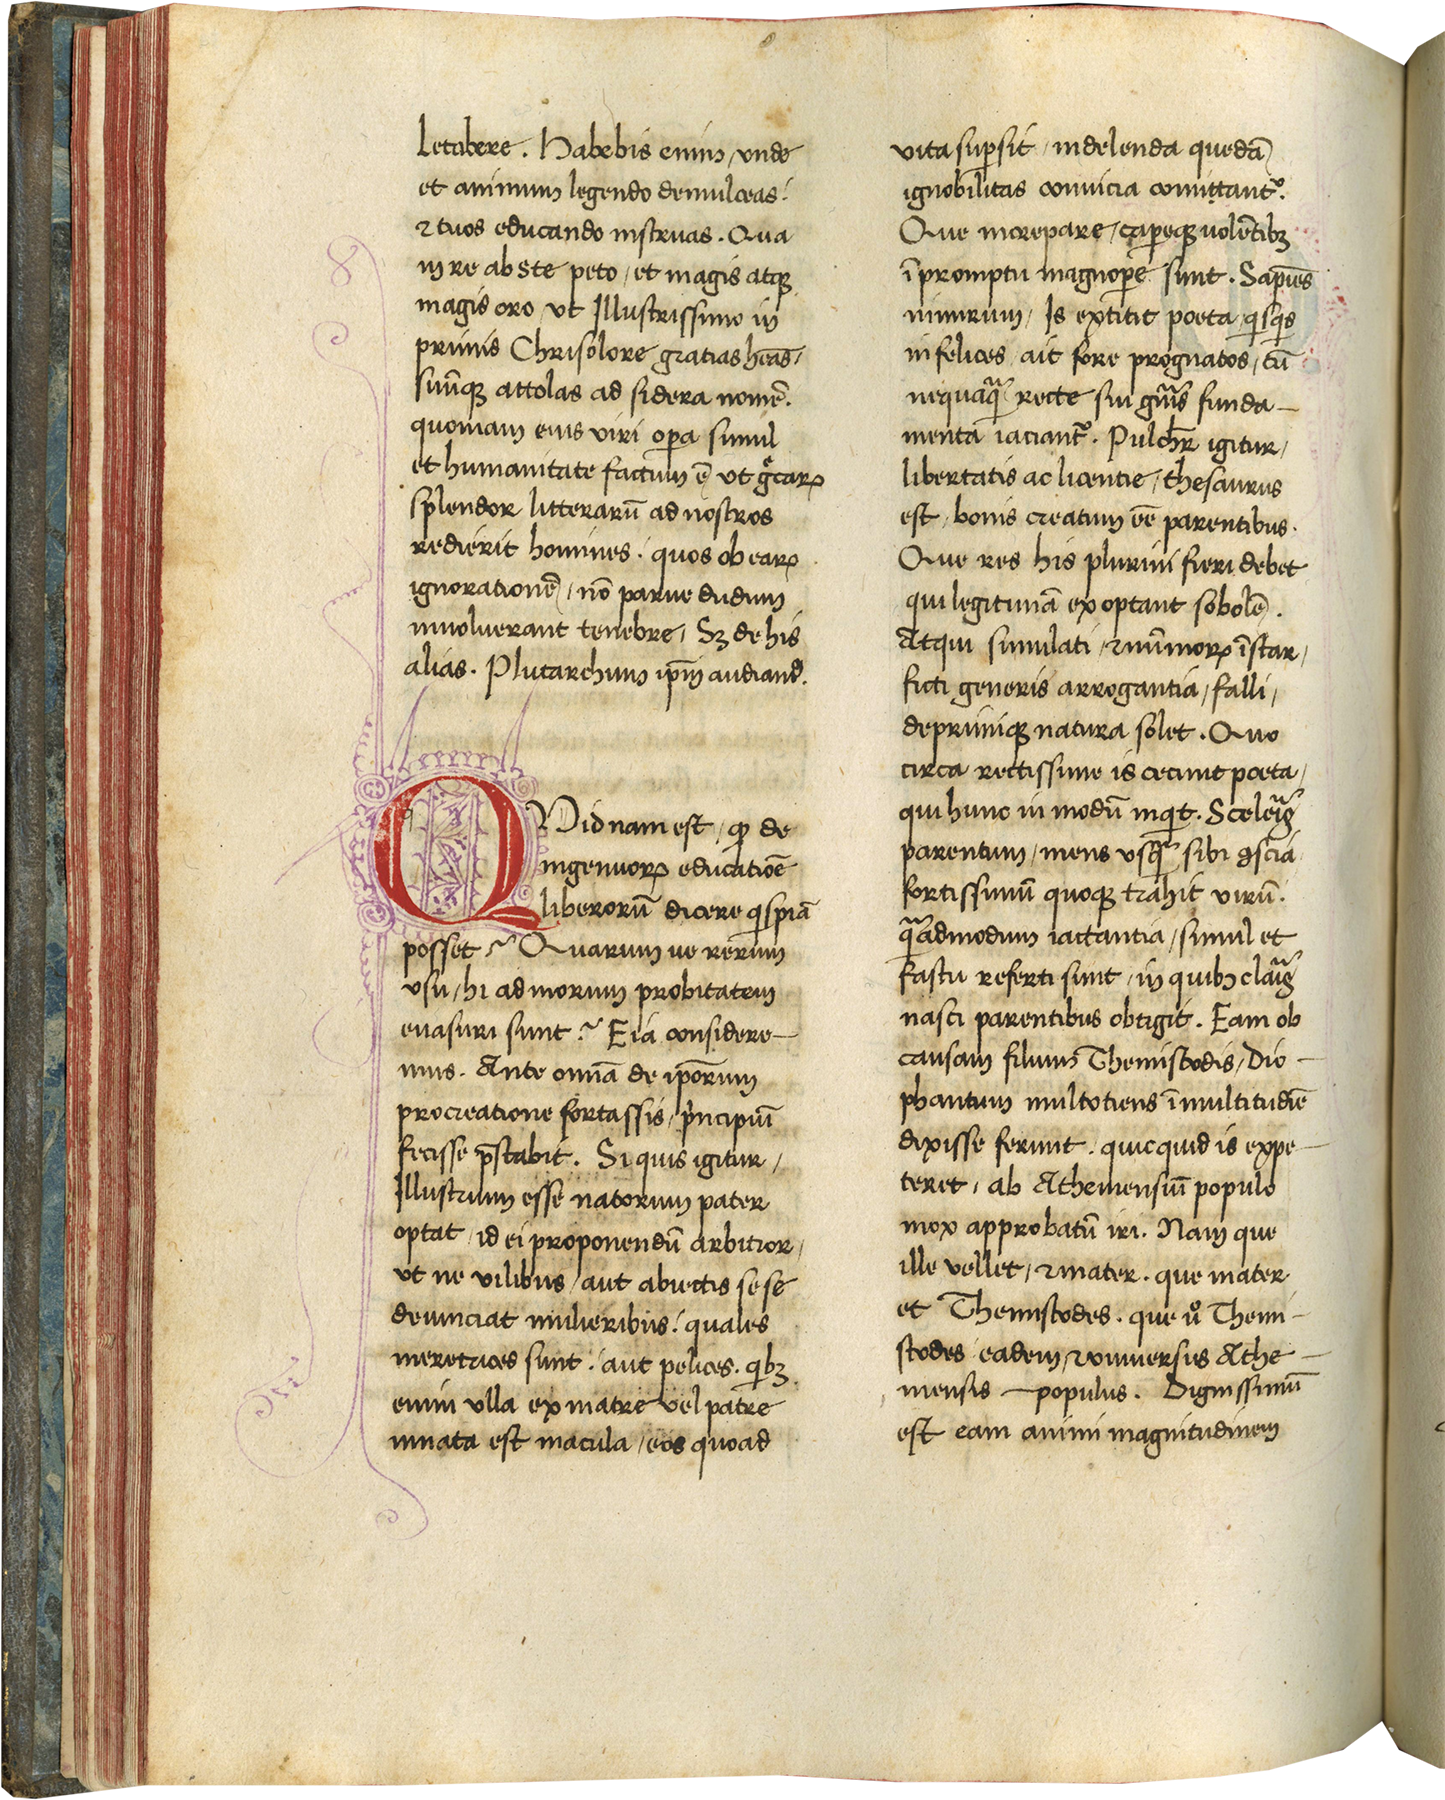 letabere. Habebis enim, unde
et animum legendo demulceas:
⁊ tuos educando instruas. Qua
in re abs te peto, et magis atqꝫ
magis oro, ut Illustrissimo in
primis Chrisolore gratias hēas,
suūqꝫ attolas ad sidera nomē.
quoniam eius viri opa simul
et humanitate factum ē, ut grecaꝝ
splendor litterarū ad nostros
redierit homines. quos ob eaꝝ
ignorationē, nō parue dudum
inuoluerant tenebre, Sꝫ de his
alias. Plutarchum ipm̄ audiand.
QVidnam est, qͥ de
ingenuoꝝ educatiōe
liberorū dicere qͥspiā
posset? Quarum ue rerum
usu, hi ad morum probitatem
euasuri sunt? Eia considere—
mus. Ante omnia de ipōrum
procreatione fortassis, pͥncipiū
fecisse p̄stabit. Si quis igitur,
Illustrium esse natorum pater
optat, id ei proponendū arbitror,
ut ne vilibus, aut abiectis sese
deuinciat mulieribus: quales
meretrices sunt: aut pelices. qͥbꝫ
enim ulla ex matre vel patre
innata est macula, eos quoad
vita supsit, indelenda quedā
ignobilitas conuicia comittantᷣ.
Que increpare, capeqꝫ uolētibꝫ
ī promptu magnope sunt. Sapiēs
nimirum, Is extitit poeta, qͥsqͥs
infelices ait fore prognatos, cū
nequaqᷓ recte sui gn̄is funda—
menta iaciantᷣ. Pulcher igitur,
libertatis ac licentie, thesaurus
est, bonis creatum eē parentibus.
Que res his plurimi fieri debet
qui legitimā exoptant sobolē.
Atqui simulati, ⁊ nūmoꝝ īstar,
ficti generis arrogantia, falli,
deprimiqꝫ natura solet. Quo
circa rectissime is cecinit poeta,
qui hunc in modū inqͥt. Sceleris
parentum, mens usqᷓ sibi ꝯscia
fortissimū quoqꝫ trahit virū.
qᷓadmodum iactantia, simul et
fastu referti sunt, in quibꝫ claris
nasci parentibus obtigit. Eam ob
causam filium Themistoclis, Dio—
phantum multotiens ī multitudīe
dixisse ferunt. quicquid is expe—
teret, ab Atheniensiū populo
mox approbatū iri. Nam que
ille vellet, ⁊ mater. que mater
et Themistocles. que uͦ Themi—
stocles eadem, ⁊ vniuersus Athe—
niensis —populus. Dignissimū
est eam animi magnitudinem